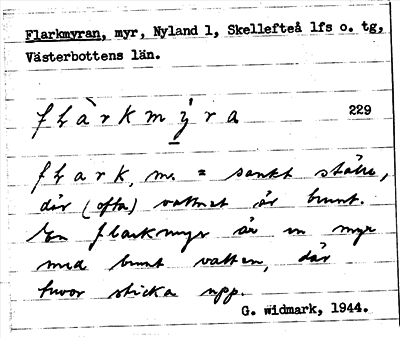 Flarkmyran, myr, Nyland 1, Skellefteå lfs o. tg,
Västerbottens län.
229
flark, m. = sankt ställe,
där (ofta) vattnet är brunt.
En flarkmyr är en myr
med brunt vatten, där
tuvor sticka upp.
G. Widmark, 1944.